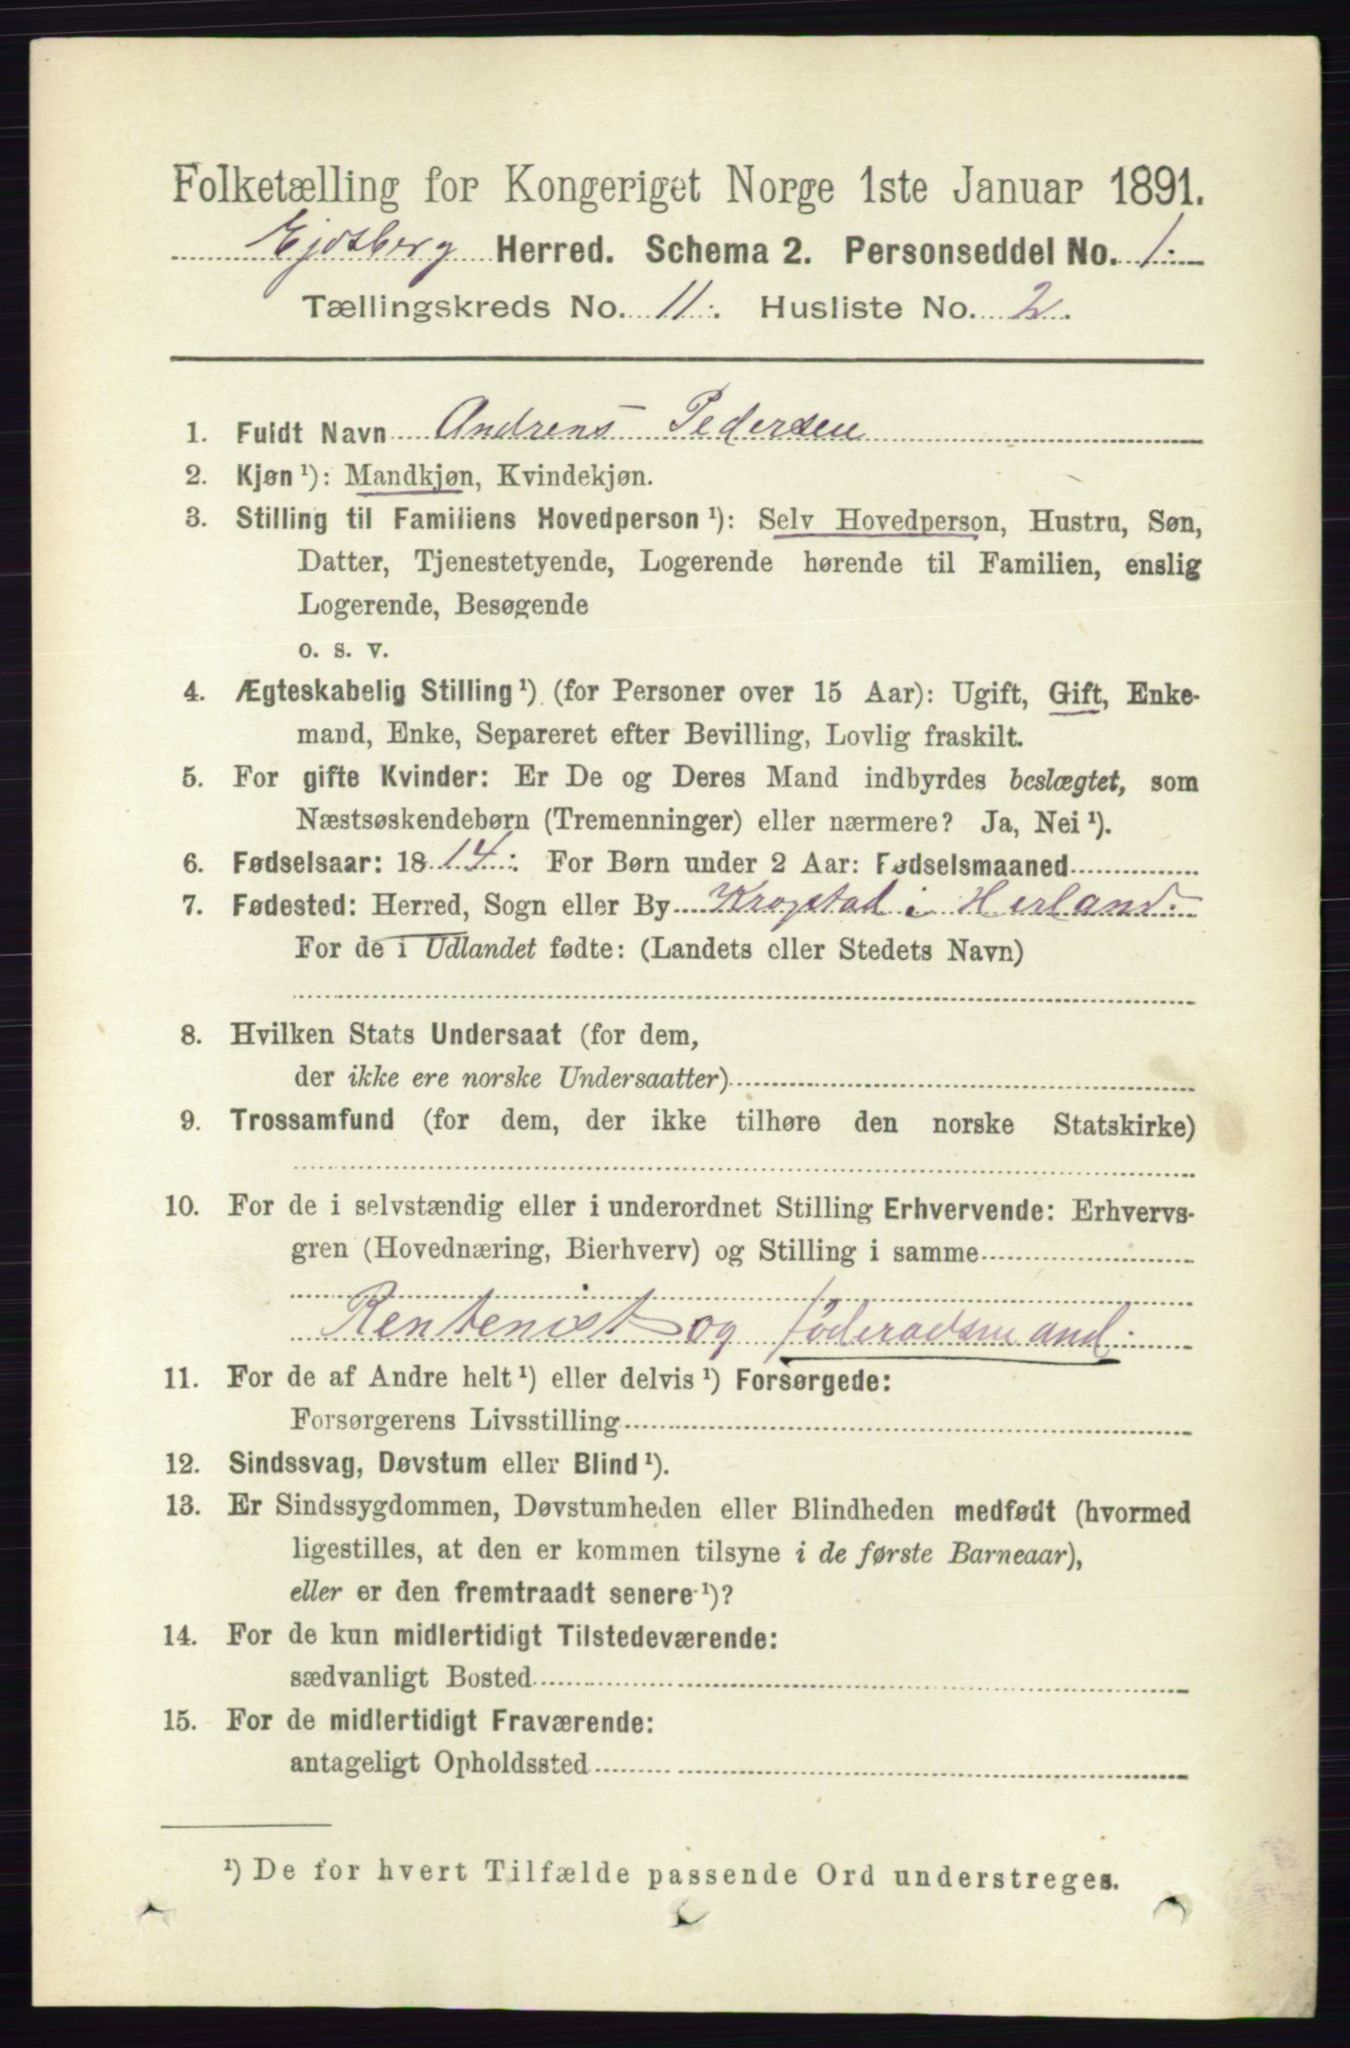 Folketælling for Kongeriget Norge 1ste Januar 1891.
Ejdsberg Herred. Schema 2. Personseddel No. 1.
Tællingskreds No. 11. Husliste No. 2.
1. Fuldt Navn Andreas Pedersen
2. Kjøn ¹): Mandkjøn, Kvindekjøn.
3. Stilling til Familiens Hovedperson ¹): Selv Hovedperson, Hustru, Søn,
Datter, Tjenestetyende, Logerende hørende til Familien, enslig
Logerende, Besøgende
o. s. v.
4. Ægteskabelig Stilling ¹) (for Personer over 15 Aar): Ugift, Gift, Enke-
mand, Enke, Separeret efter Bevilling, Lovlig fraskilt.
5. For gifte Kvinder: Er De og Deres Mand indbyrdes beslægtet, som
Næstsøskendebørn (Tremenninger) eller nærmere? Ja, Nei ¹).
6. Fødselsaar: 1814. For Børn under 2 Aar: Fødselsmaaned
7. Fødested: Herred, Sogn eller By Krogstad i Herland.
For de i Udlandet fødte: (Landets eller Stedets Navn)
8. Hvilken Stats Undersaat (for dem,
der ikke ere norske Undersaatter)
9. Trossamfund (for dem, der ikke tilhøre den norske Statskirke)
10. For de i selvstændig eller i underordnet Stilling Erhvervende: Erhvervs-
gren (Hovednæring, Bierhverv) og Stilling i samme
Rentenist og føderadsmand.
11. For de af Andre helt ¹) eller delvis ¹) Forsørgede:
Forsørgerens Livsstilling
12. Sindssvag, Døvstum eller Blind ¹).
13. Er Sindssygdommen, Døvstumheden eller Blindheden medfødt (hvormed
ligestilles, at den er kommen tilsyne i de første Barneaar),
eller er den fremtraadt senere ¹)?
14. For de kun midlertidigt Tilstedeværende:
sædvanligt Bosted
15. For de midlertidigt Fraværende:
antageligt Opholdssted
¹) De for hvert Tilfælde passende Ord understreges.